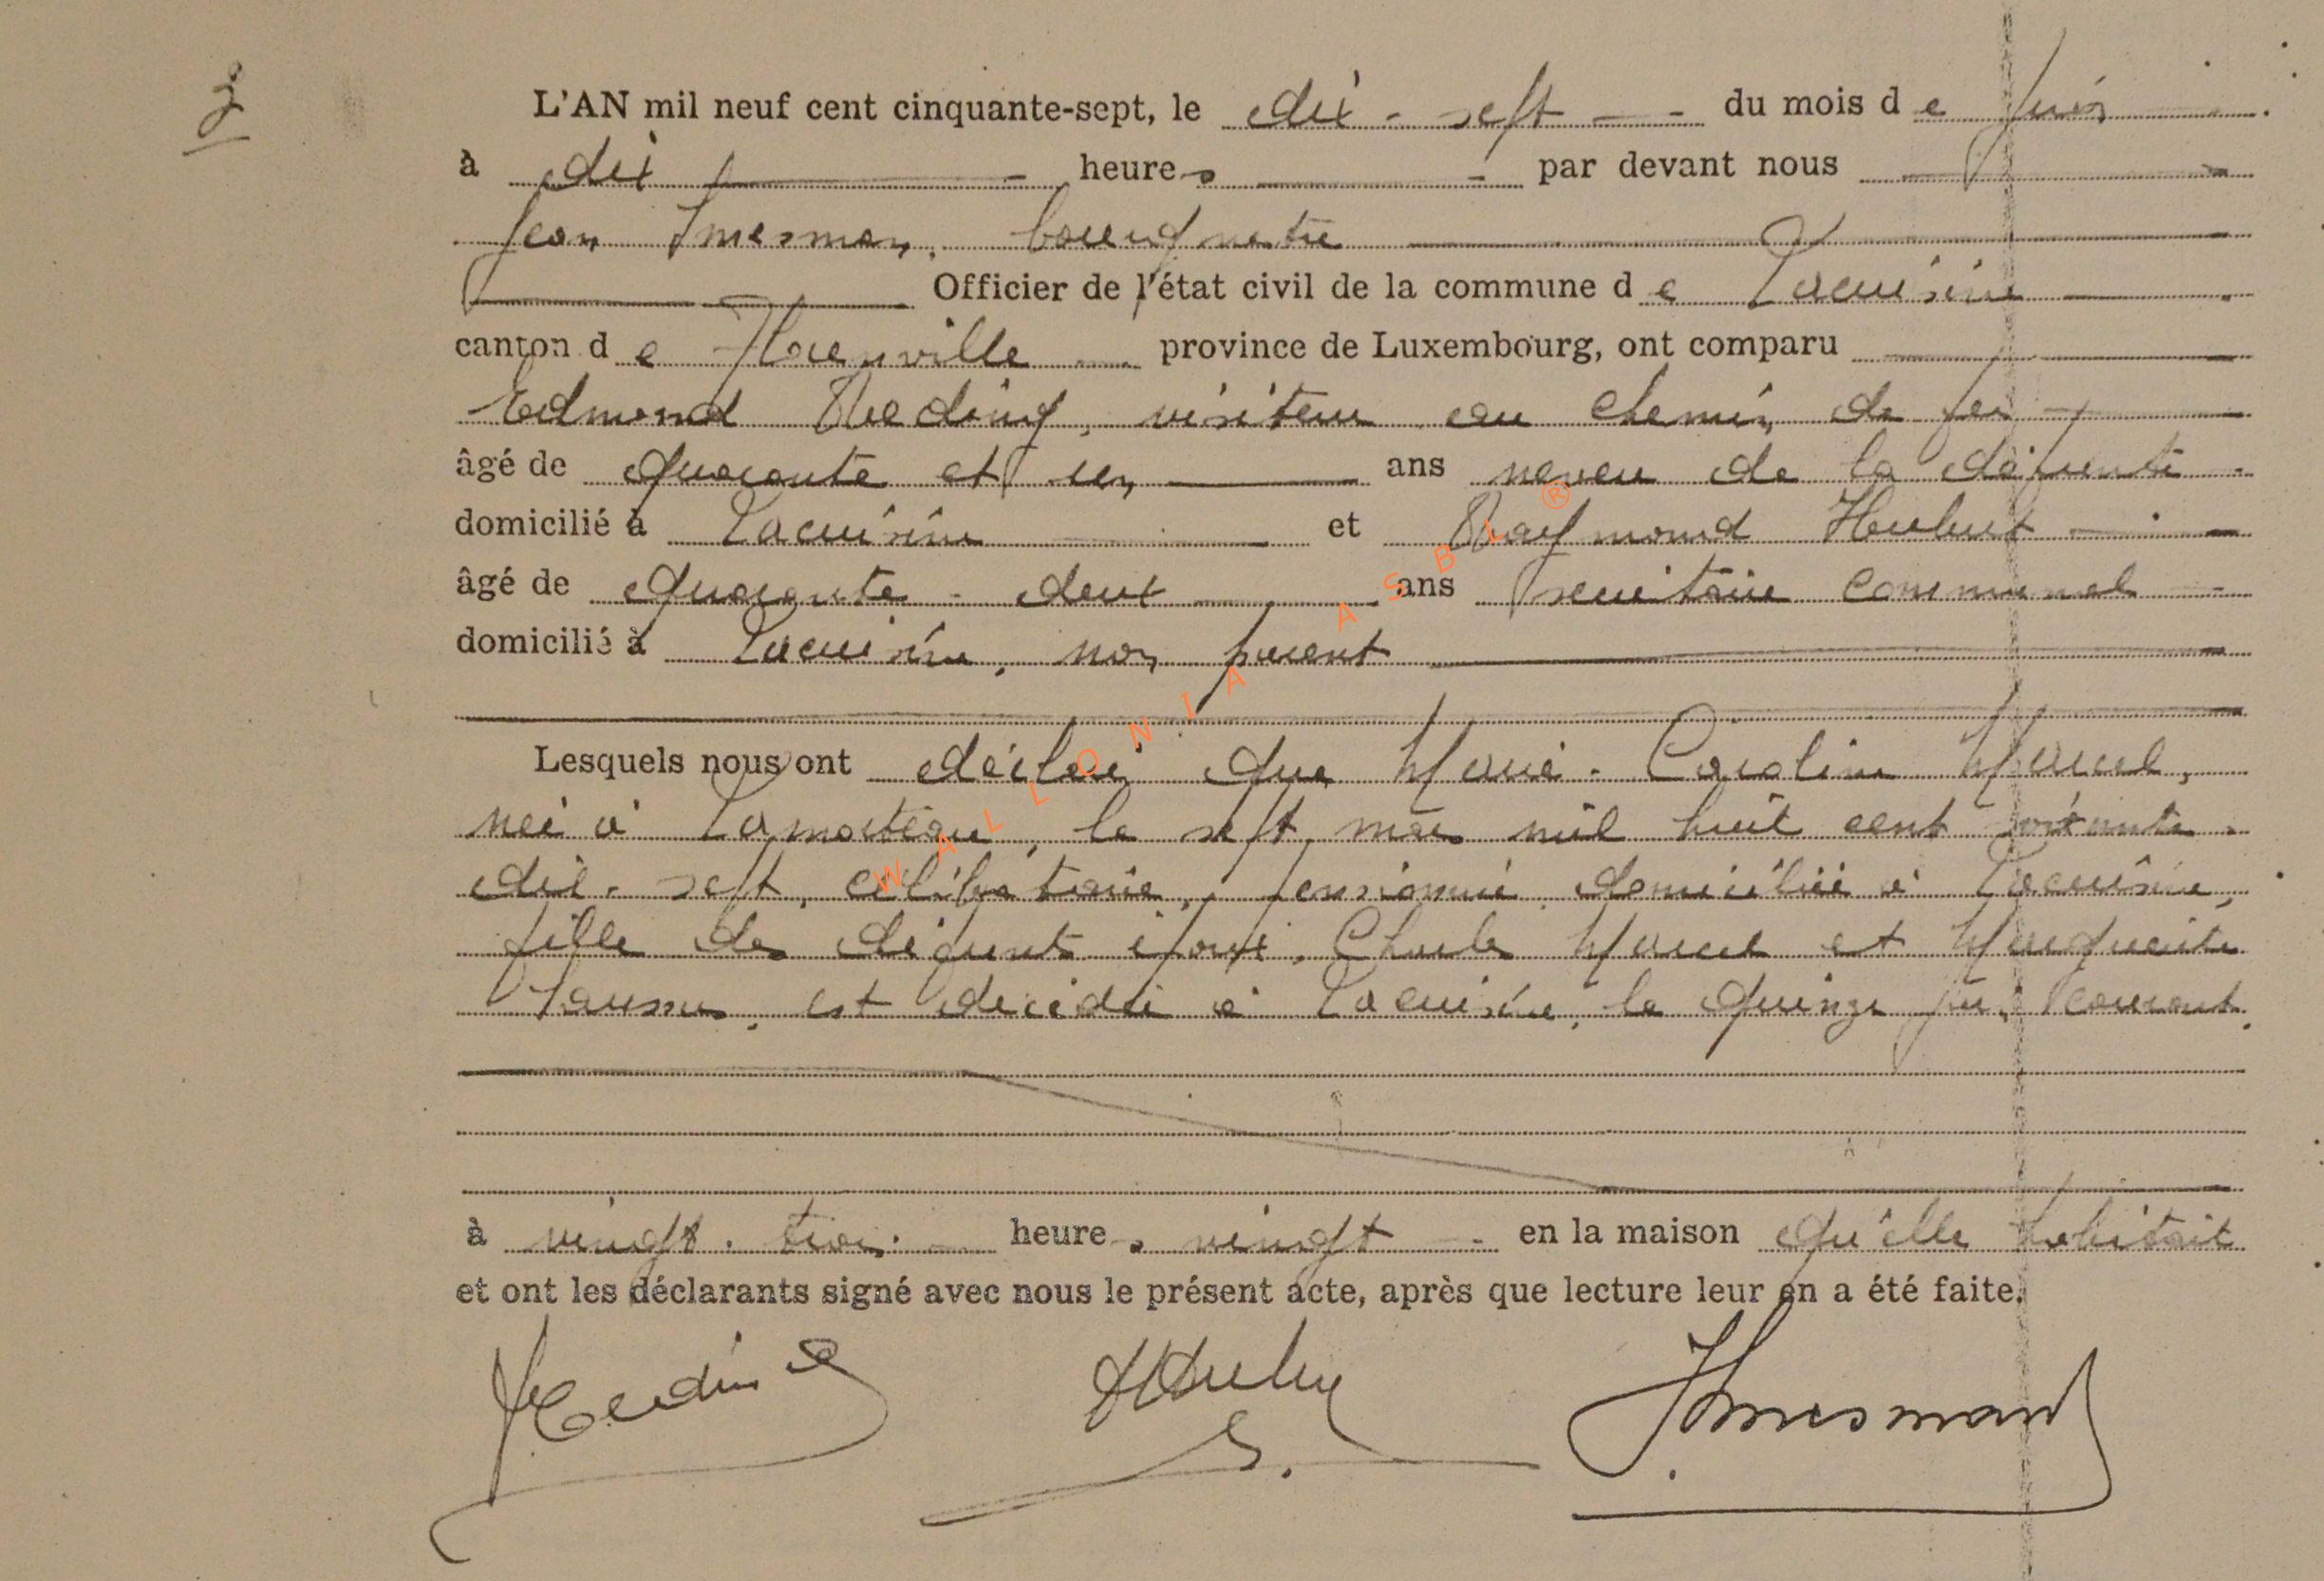 3
L'AN mil neuf cent cinquante-sept, le dix-sept du mois de Juin
à dix heures par devant nous
Jean Smesman, bourgmestre
Officier de l'état civil de la commune de Lacuisine
canton de Florenville province de Luxembourg, ont comparu
Edmond Reding, visiteur au chemin de fer
âgé de quarante et un ans neveu de la défunte
domicilié à Lacuisine et Raymond Hubert
âgé de quarante-deux ans secrétaire communal
domicilié à Lacuisine, non parent
Lesquels nous ont déclaré que Marie-Caroline Marcel,
née à Lamorteau, le sept mars mil huit cent soixante-
dix-sept, célibataire, pensionnée, domiciliée à Lacuisine,
fille des défunts époux, Charles Marcel et Marguerite
est décédée à Lacuisine, le quinze juin courant.
à vingt-trois heures vingt en la maison qu'elle habitait
et ont les déclarants signé avec nous le présent acte, après que lecture leur en a été faite.
Reding Hubert Smesman
S.
WALLONIA ASBL ®